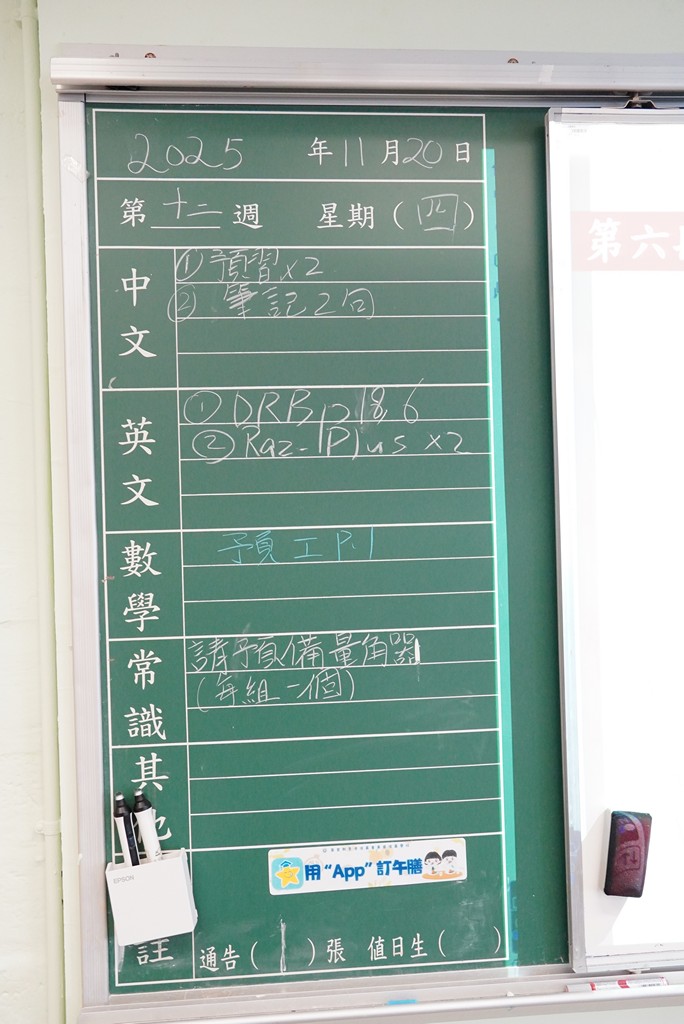 2025 年 11 月 20 日
第 十二 週 星期 ( 四 )
中文
① 預習 x2
② 筆記 2 句
英文
① DRB p18, 6
② Raz-Plus x2
數學
預 工 P.1
常識
請預備量角器
(每組一個)
其
用“App”訂午膳
EPSON
註
通告 ( 1 ) 張 值日生 ( )
第六